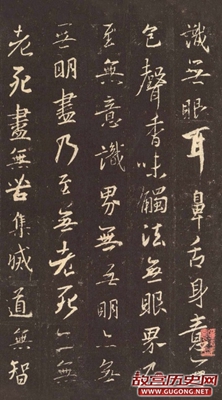 識無眼耳鼻舌身意無
色聲香味觸法無眼界乃
至無意識界無無明亦無
無明盡乃至無老死亦無
老死盡無苦集滅道無智
故宫历史网
www.GUGONG.net